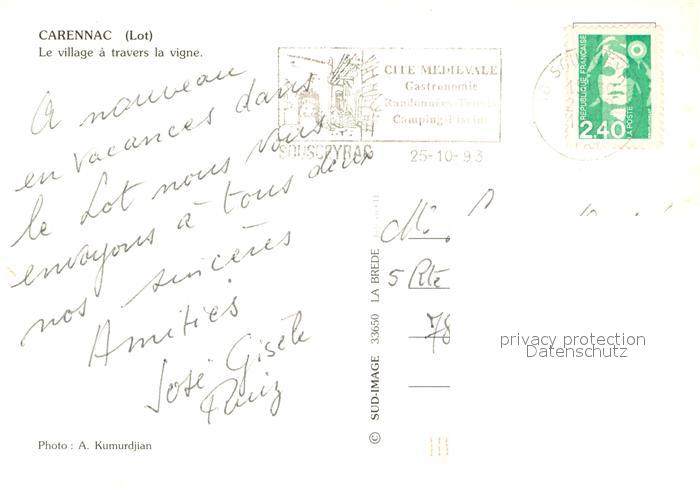 CARENNAC (Lot)
Le village à travers la vigne.
CITE MEDIEVALE
Gastronomie
Camping-Piscine
SOUSCEYRAC
25-10-93
REPUBLIQUE FRANÇAISE
2,40
LA POSTE
A nouveau
en vacances dans
le Lot nous vous
envoyons à tous deux
nos sincères
Amitiés
José Gisèle
Ruiz
© SUD-IMAGE 33650 LA BREDE
5 Rte
78
privacy protection
Datenschutz
Photo : A. Kumurdjian